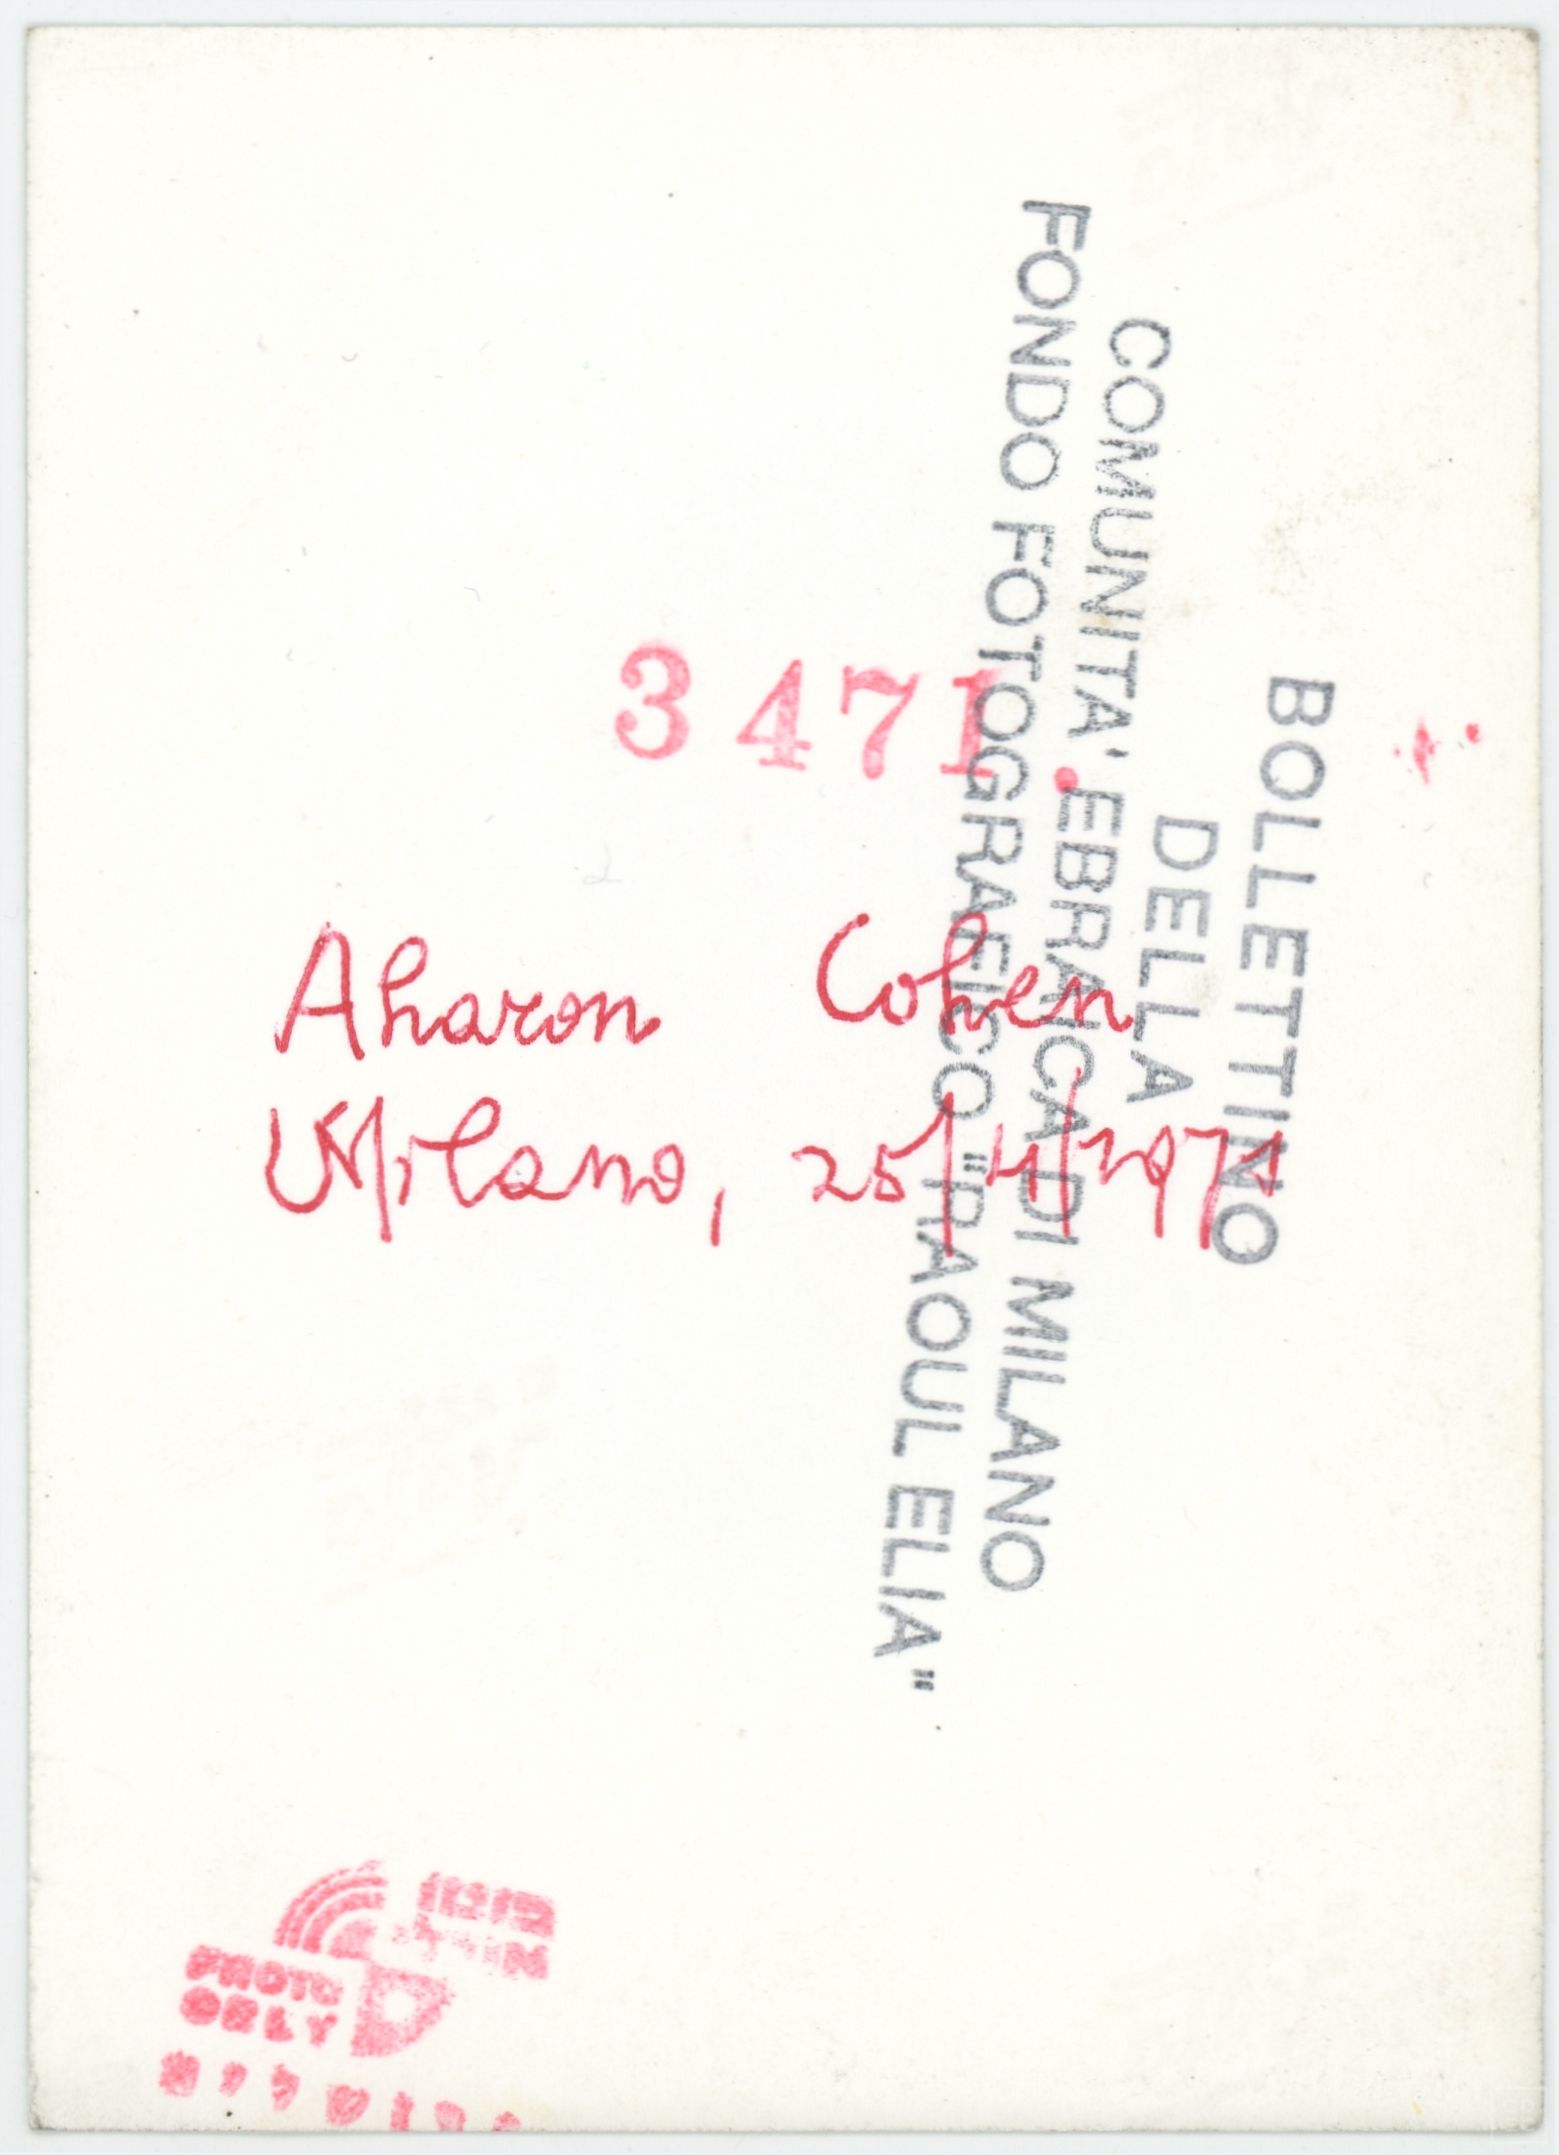 BOLLETTINO
DELLA
COMUNITA' EBRAICA DI MILANO
FONDO FOTOGRAFICO "RAOUL ELIA"
3471.
Aharon Cohen
Milano, 25/11/1971
PHOTO
ORLY